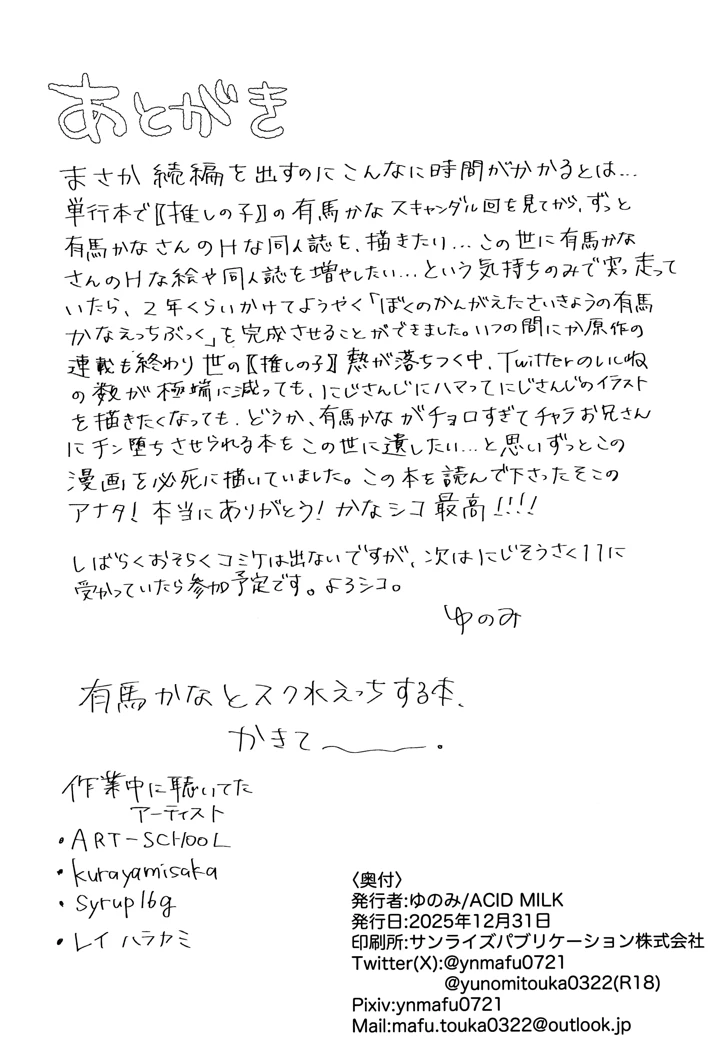 あとがき
まさか続編を出すのにこんなに時間がかかるとは…
単行本で【推しの子】の有馬かなスキャンダル回を見てから、ずっと
有馬かなさんのHな同人誌を、描きたい…この世に有馬かな
さんのHな絵や同人誌を増やしたい…という気持ちのみで突っ走って
いたら、2年くらいかけてようやく「ぼくのかんがえたさいきょうの有馬
かなえっちぶっく」を完成させることができました。いつの間にか原作の
連載も終わり世の【推しの子】熱が落ちつく中、Twitterのいいね
の数が極端に減っても、にじさんじにハマってにじさんじのイラスト
を描きたくなっても、どうか、有馬かながチョロすぎてチャラお兄さん
にチン堕ちさせられる本をこの世に遺したい…と思いずっとこの
漫画を必死に描いていました。この本を読んで下さったそこの
アナタ!本当にありがとう!かなシコ最高!!!!
しばらくおそらくコミケは出ないですが、次はにじそうさく11に
受かっていたら参加予定です。よろシコ。
ゆのみ
有馬かなとスク水えっちする本、
かきて〜。
作業中に聴いてた
アーティスト
・ART-SCHOOL
・kurayamisaka
・syrup16g
・レイ ハラカミ
〈奥付〉
発行者:ゆのみ/ACID MILK
発行日:2025年12月31日
印刷所:サンライズパブリケーション株式会社
Twitter(X):@ynmafu0721
@yunomitouka0322(R18)
Pixiv:ynmafu0721
Mail:mafu.touka0322@outlook.jp